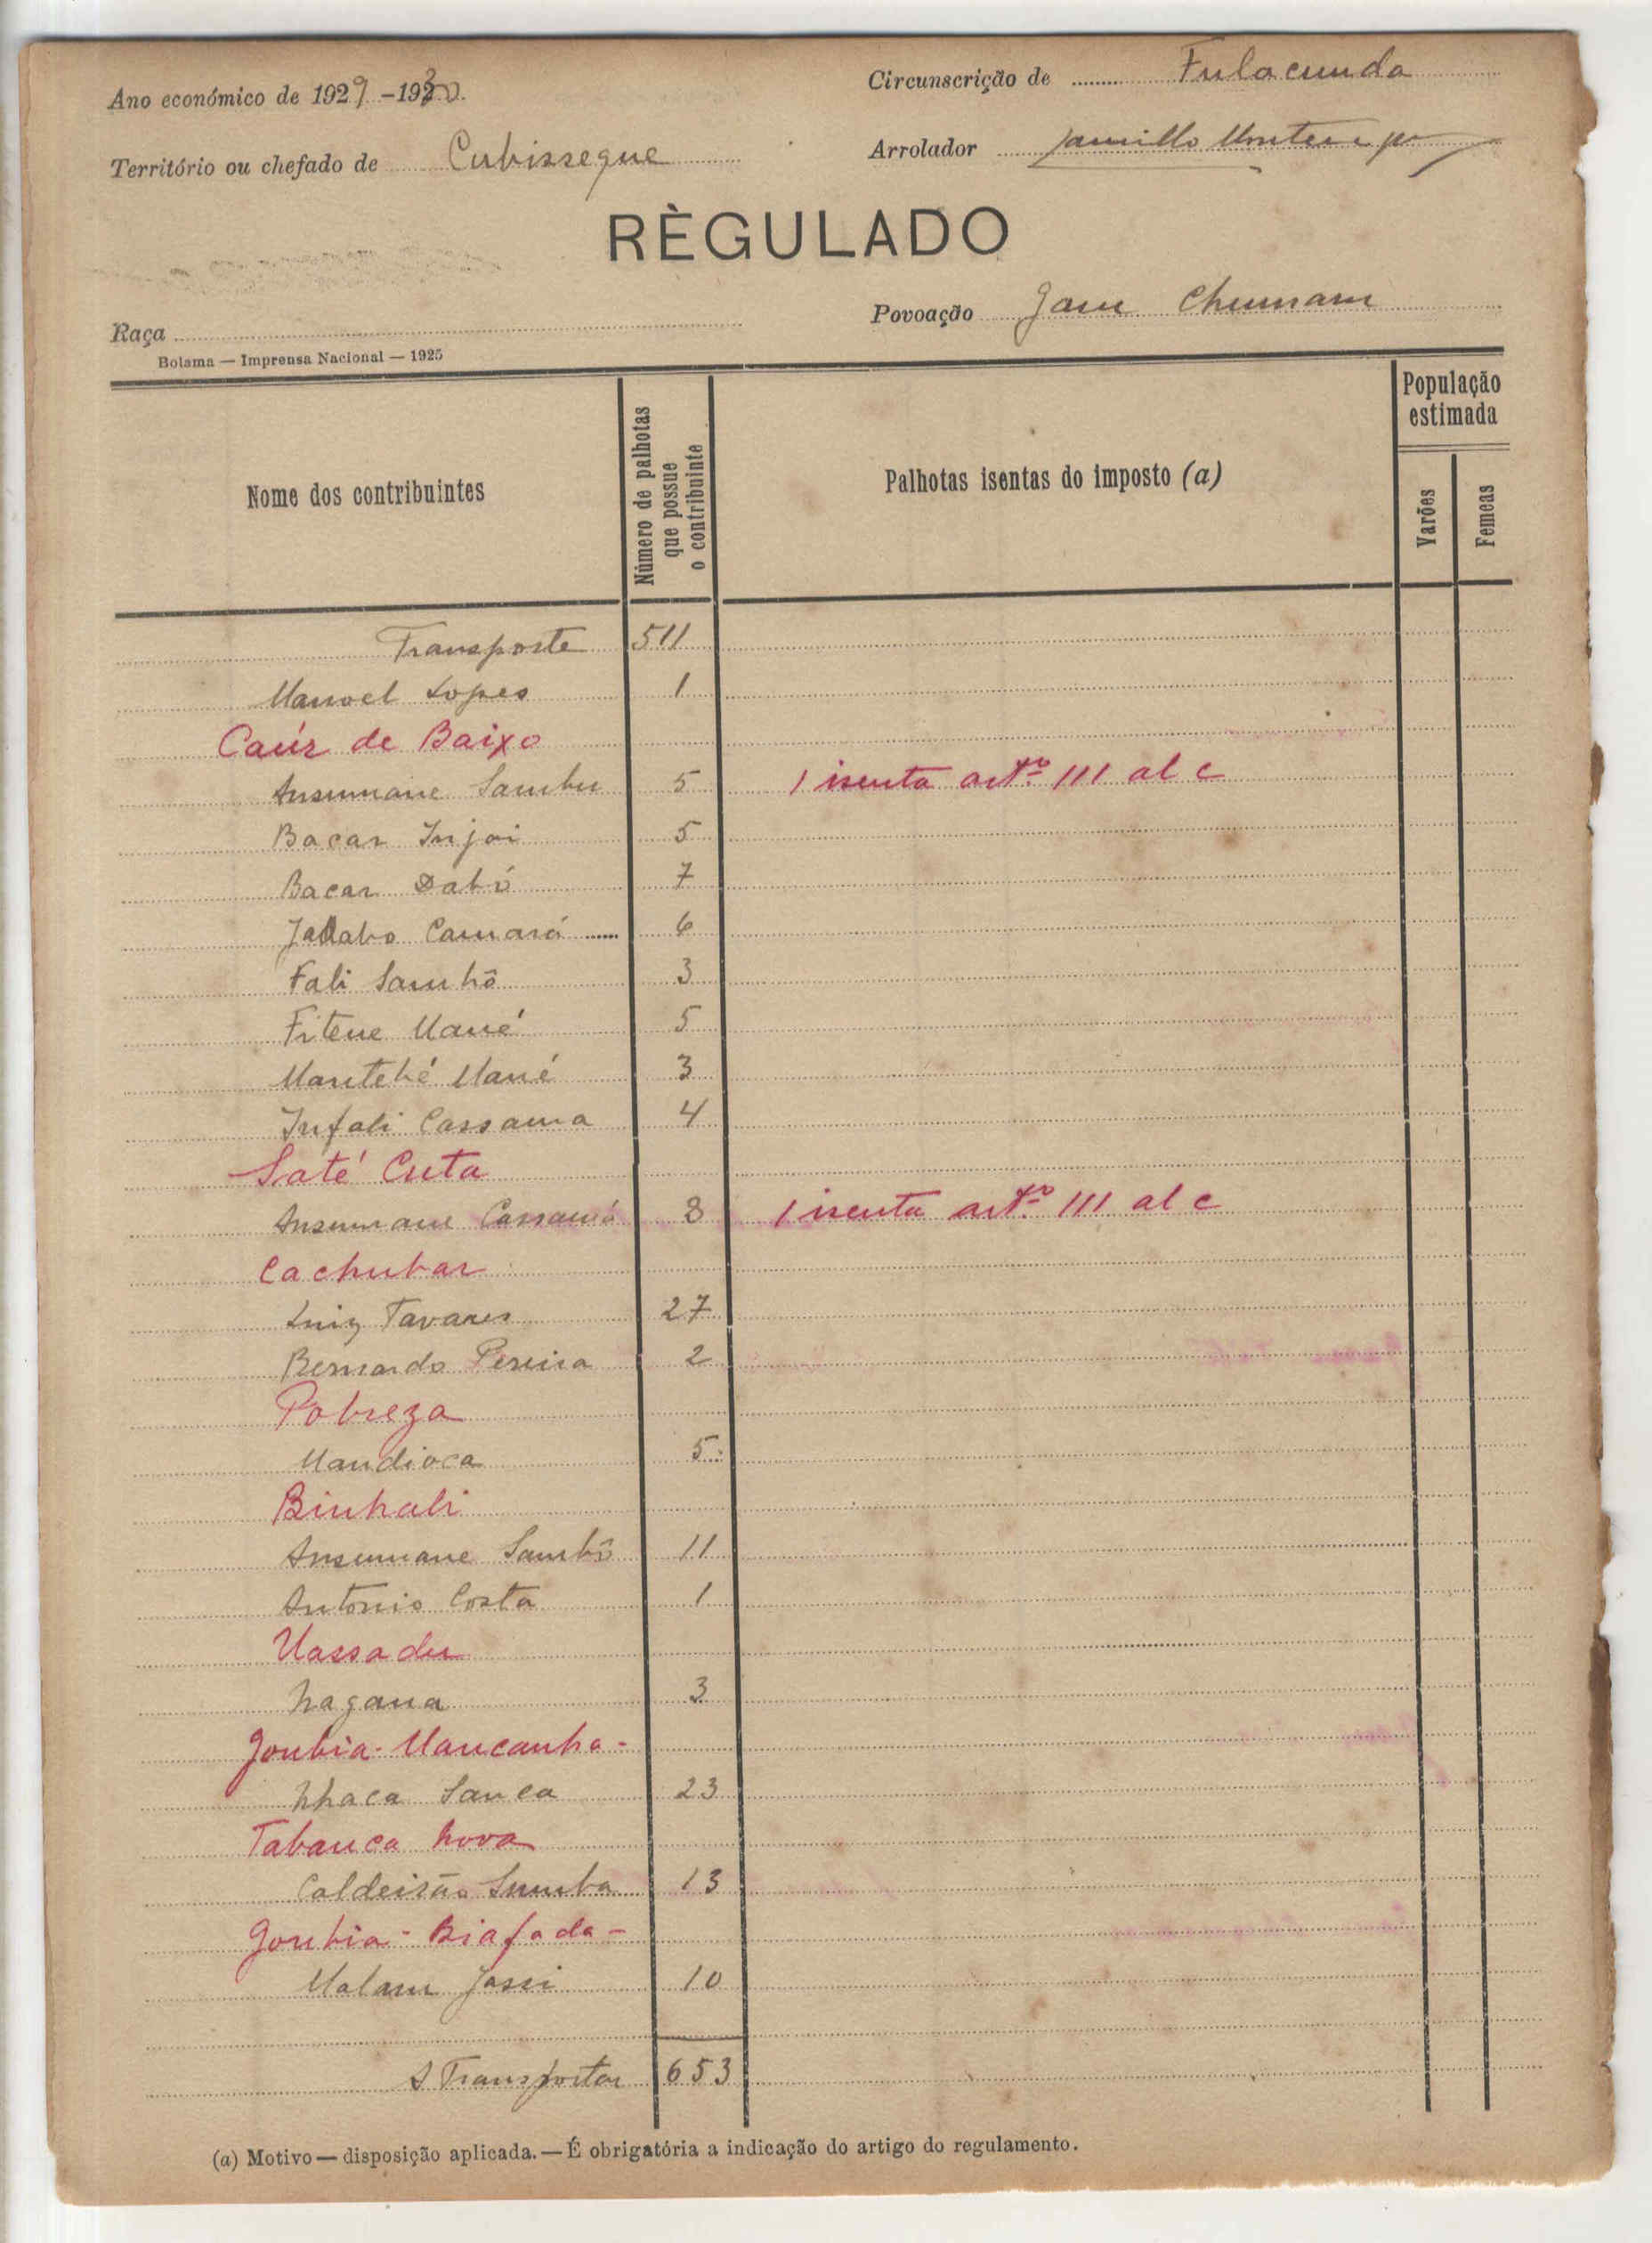 Ano económico de 1929-1930.
Circunscrição de Fulacunda
Território ou chefado de Cubisseque
Arrolador
RÈGULADO
Raça
Povoação Jam Chumam
Bolama — Imprensa Nacional — 1925
Nome dos contribuintes
Número de palhotas que possue o contribuinte
Palhotas isentas do imposto (a)
População estimada
Varões
Femeas
Transporte 511
Manoel Lopes 1
Caúr de Baixo
Ansumane Sambu 5 1 isenta artº 111 al c
Bacar Injai 5
Bacar Dabó 7
Camará 6
Fali Sambô 3
Fitene Mané 5
Mantebé Mané 3
Infali Cassama 4
Saté Cuta
Ansumane Cassamá 8 1 isenta artº 111 al c
Cachubar
Luiz Tavares 27
Bernardo Pereira 2
Pobreza
Mandioca 5
Binhali
Ansumane Sambô 11
Antonio Costa 1
Uassadu
Nagana 3
Goubia-Mancanha-
Nhaca Sanca 23
Tabanca Nova
Caldeirão Sumba 13
Goubia-Biafada-
Malam Jassi 10
A Transportar 653
(a) Motivo — disposição aplicada. — É obrigatória a indicação do artigo do regulamento.